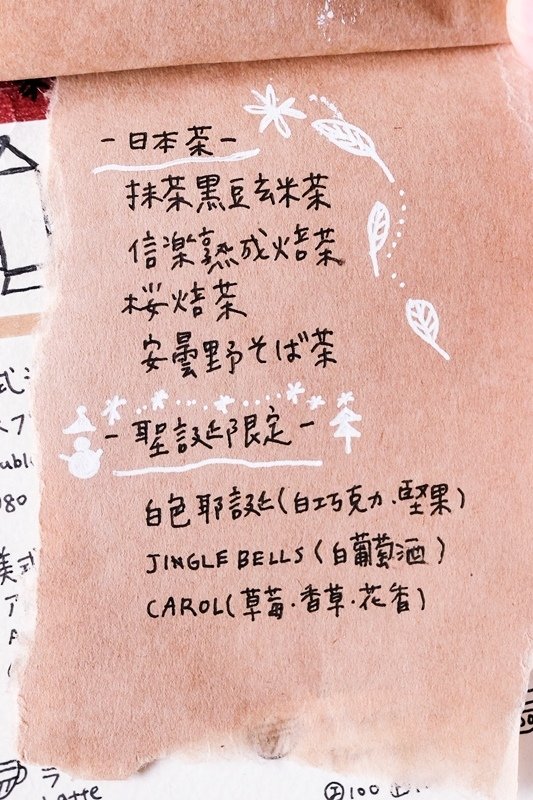 -日本茶-
抹茶黒豆玄米茶
信楽熟成焙茶
桜焙茶
安曇野そば茶
-聖誕限定-
白色耶誕(白巧克力.堅果)
JINGLE BELLS(白葡萄酒)
CAROL(草莓.香草.花香)
美式
ラ
Latte